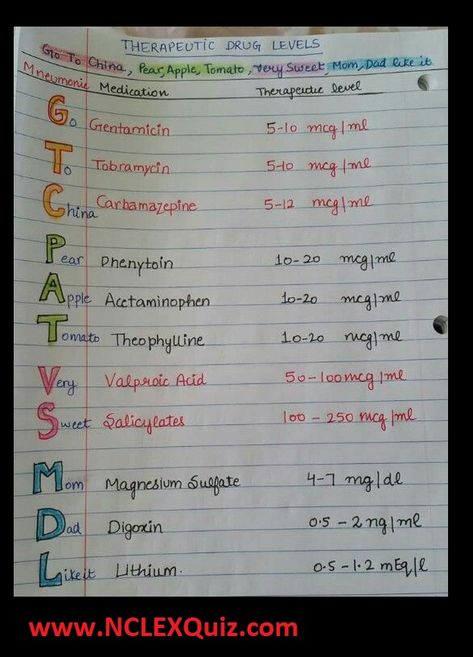 THERAPEUTIC DRUG LEVELS
Go To China, Pear, Apple, Tomato, very Sweet, Mom, Dad like it
Mneumonic Medication Therapeutic level
Go Gentamicin 5-10 mcg/ml
To Tobramycin 5-10 mcg/ml
China Carbamazepine 5-12 mcg/ml
Pear Phenytoin 10-20 mcg/ml
Apple Acetaminophen 10-20 mcg/ml
Tomato Theophylline 10-20 mcg/ml
Very Valproic Acid 50-100 mcg/ml
Sweet Salicylates 100-250 mcg/ml
Mom Magnesium Sulfate 4-7 mg/dl
Dad Digoxin 0.5-2 ng/ml
Like it Lithium. 0.5-1.2 mEq/l
www.NCLEXQuiz.com